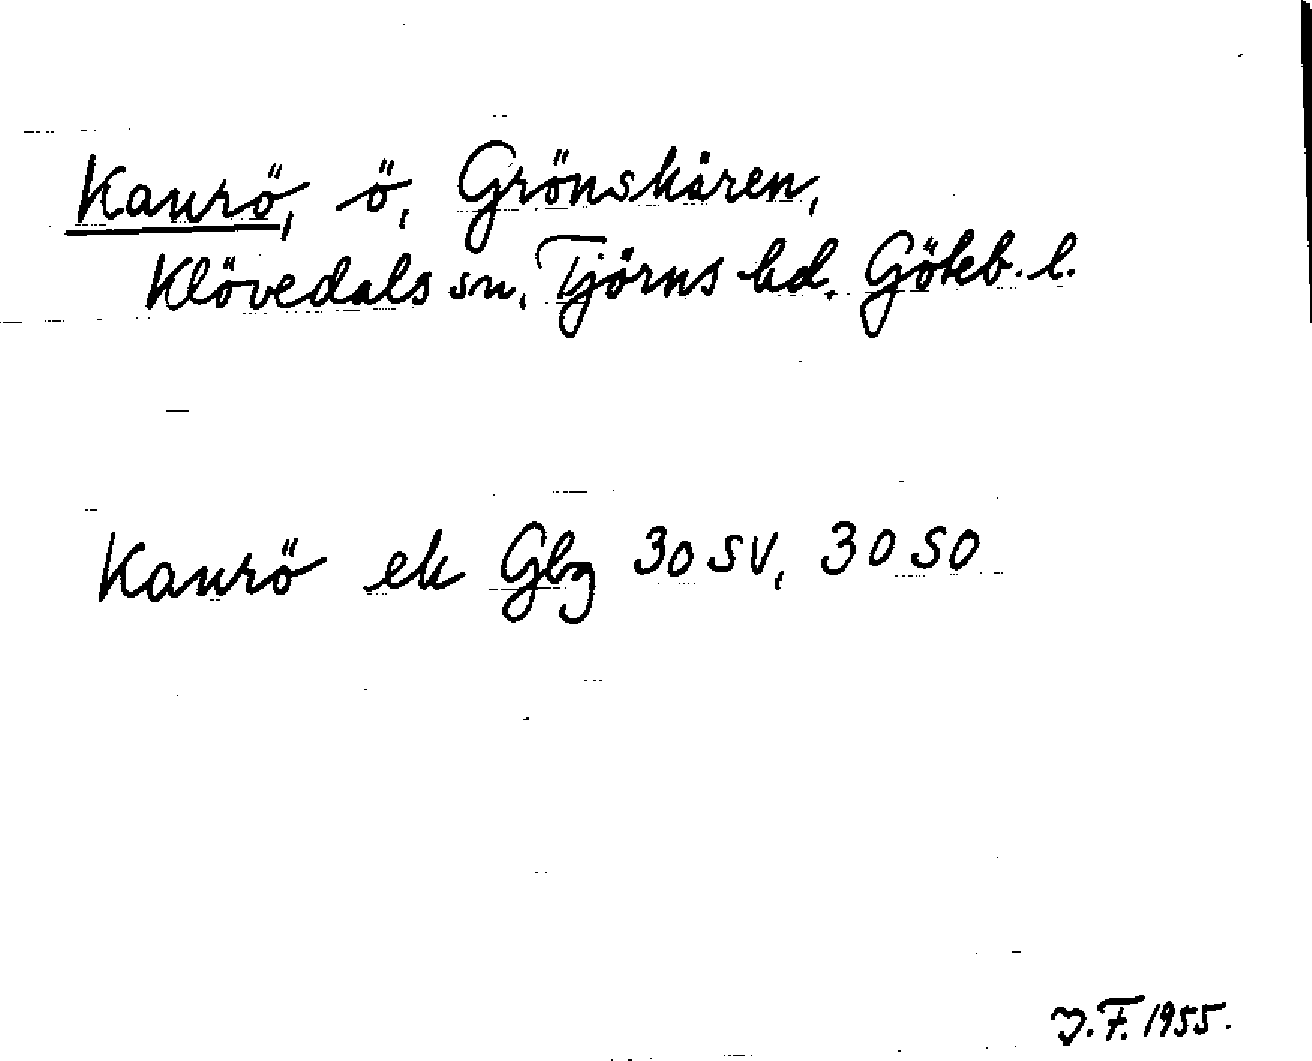 Kaurö, ö, Grönskären,
Klövedals sn, Tjörns hd. Göteb. l.
Kaurö ek Gbg 30 SV, 30 SO
J.F. 1955.